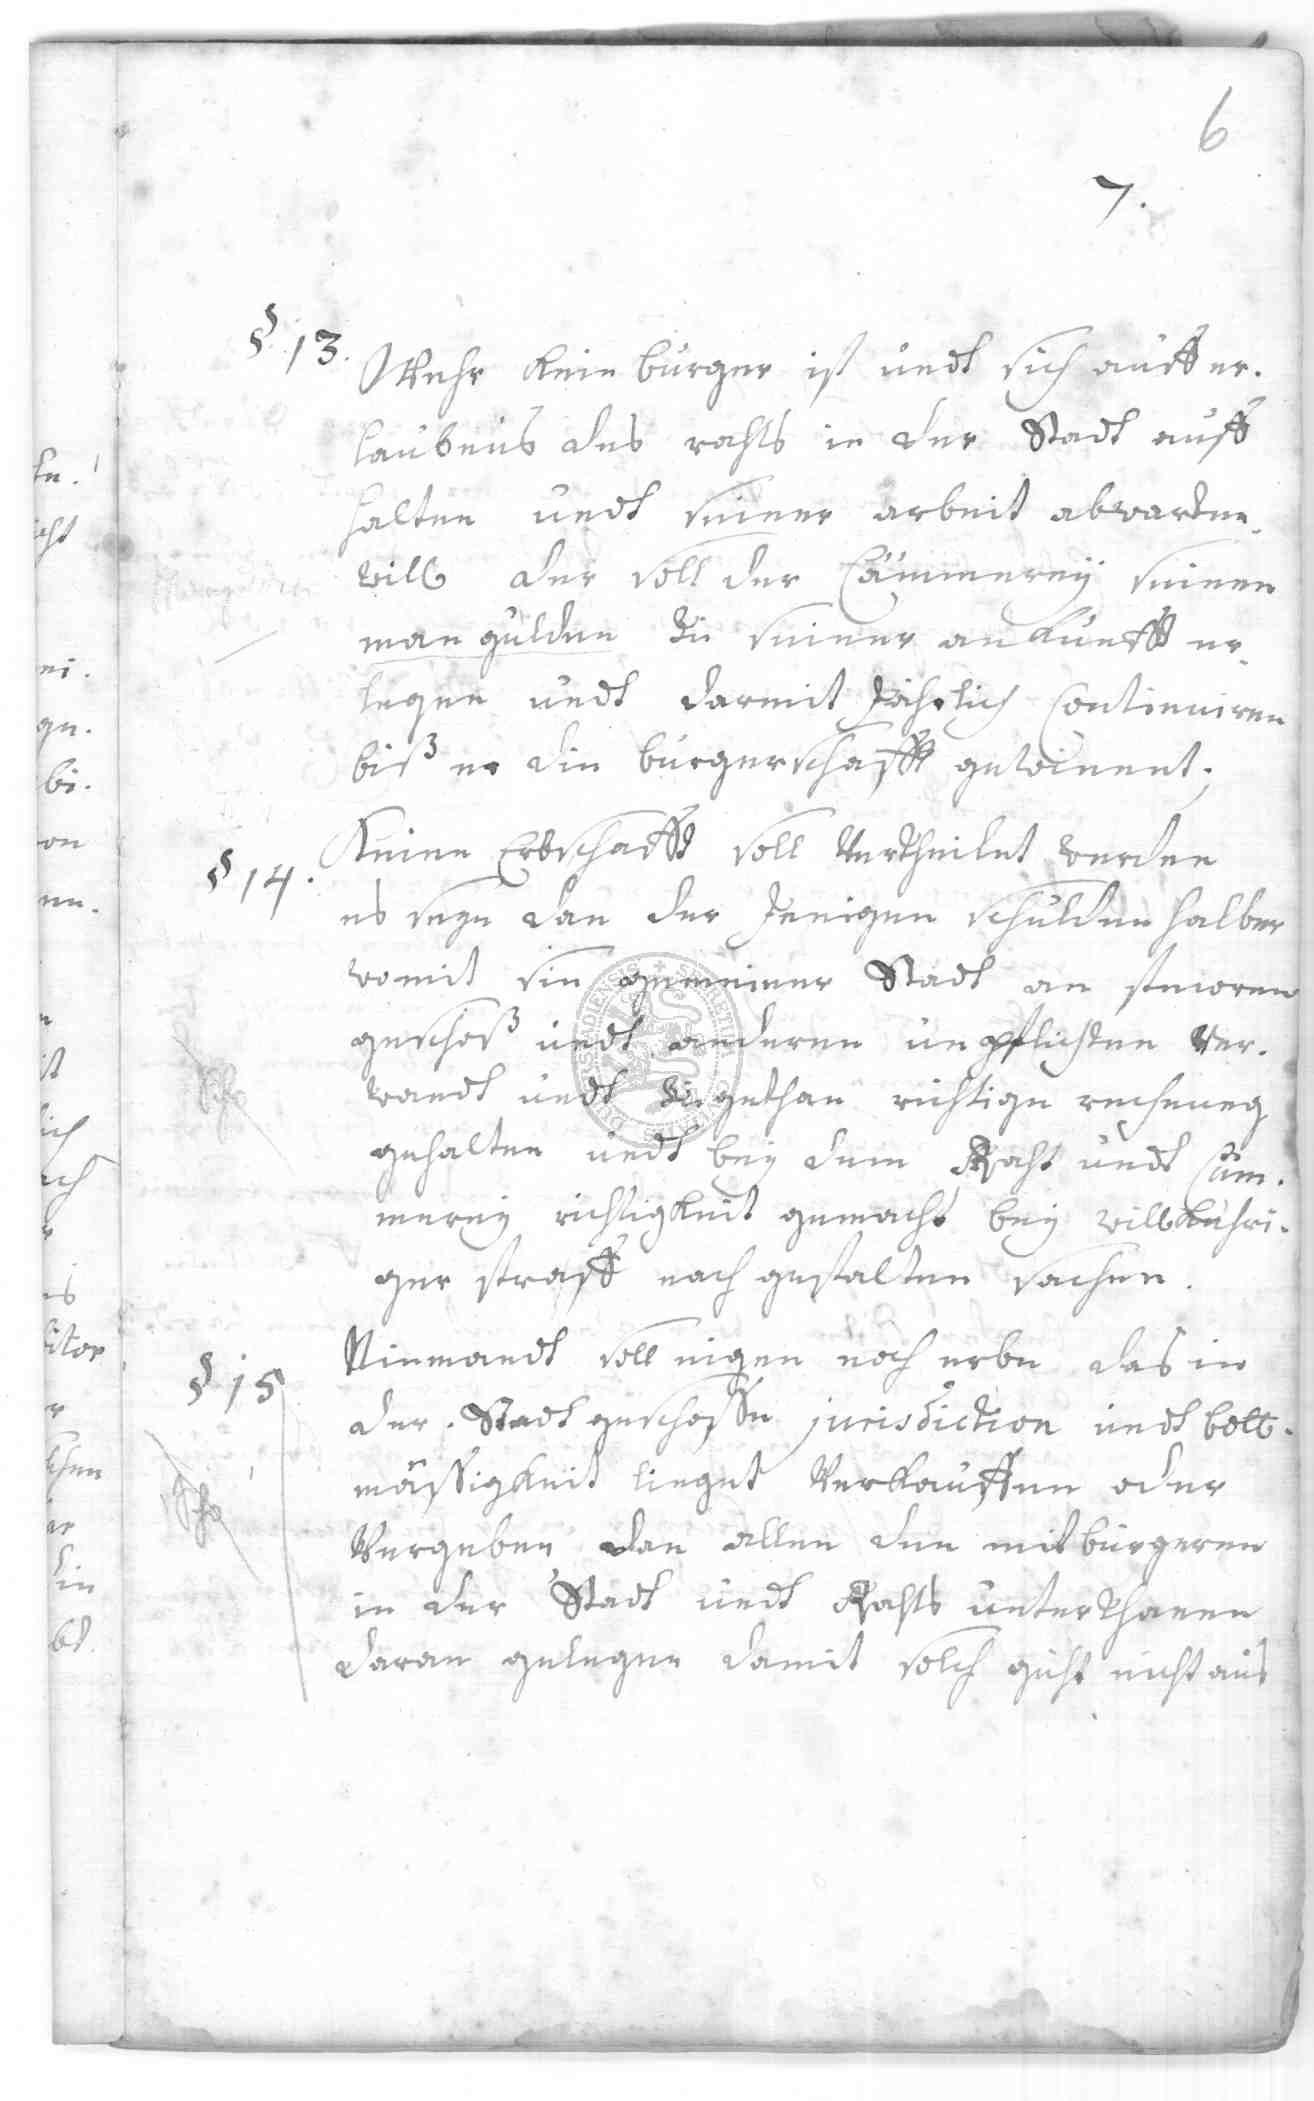 6
7.
§ 13.
Wehr kein burger ist undt sich auff er.
laubnus des rahts in der Stadt auff
halten undt seiner arbeit abwarten
will der soll der Cämmerey seinen
man gulden zu seiner ankunfft er.
legen undt darmit Jährlich Continuiren
biß er die burgerschafft gewinnet.
§ 14.
Keine Erbschafft soll Vertheilet werden
es seye dan der Jenigen schulden halber
womit sie gemeiner Stadt an steuren
geschoß undt anderen unpflichten Ver.
wandt undt zugethan richtige rechnung
gehalten undt bey dem Raht undt Cäm.
merey richtigkeit gemacht bey willkuhri.
ger straff nach gestalten sachen.
§ 15
Niemandt soll eigen noch erbe das in
der Stadt geschosse jurisdiction undt bott.
mässigkeit lieget Verkauffen oder
Vergeben dan allen den mitburgeren
in der Stadt undt Rahts unterthanen
daran gelegen damit solch guht nicht aus